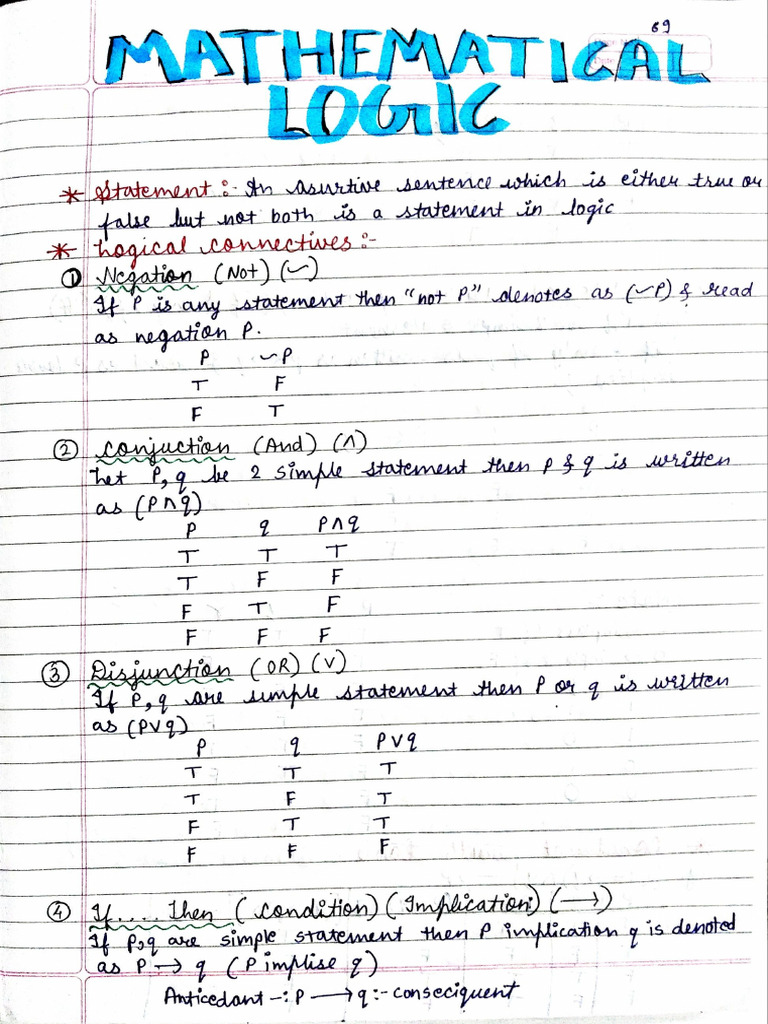 69
MATHEMATICAL
LOGIC
* Statement :- An asurtive sentence which is either true or
false but not both is a statement in logic
* Logical connectives :-
① Negation (Not) (~)
If P is any statement then "not P" denotes as (~P) & read
as negation P.
P ~P
T F
F T
② Conjuction (And) (∧)
Let P, q be 2 simple statement then p & q is written
as (P∧q)
P q P∧q
T T T
T F F
F T F
F F F
③ Disjunction (OR) (∨)
If P, q are simple statement then P or q is written
as (P∨q)
P q P∨q
T T T
T F T
F T T
F F F
④ If.....Then (condition) (Implication) (→)
If P, q are simple statement then P implication q is denoted
as P → q (P implise q)
Anticedant -: P → q :- conseciquent